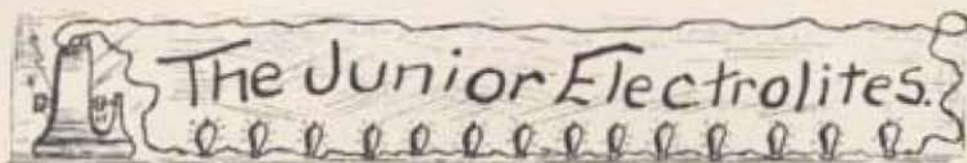 The Junior Electrolites.